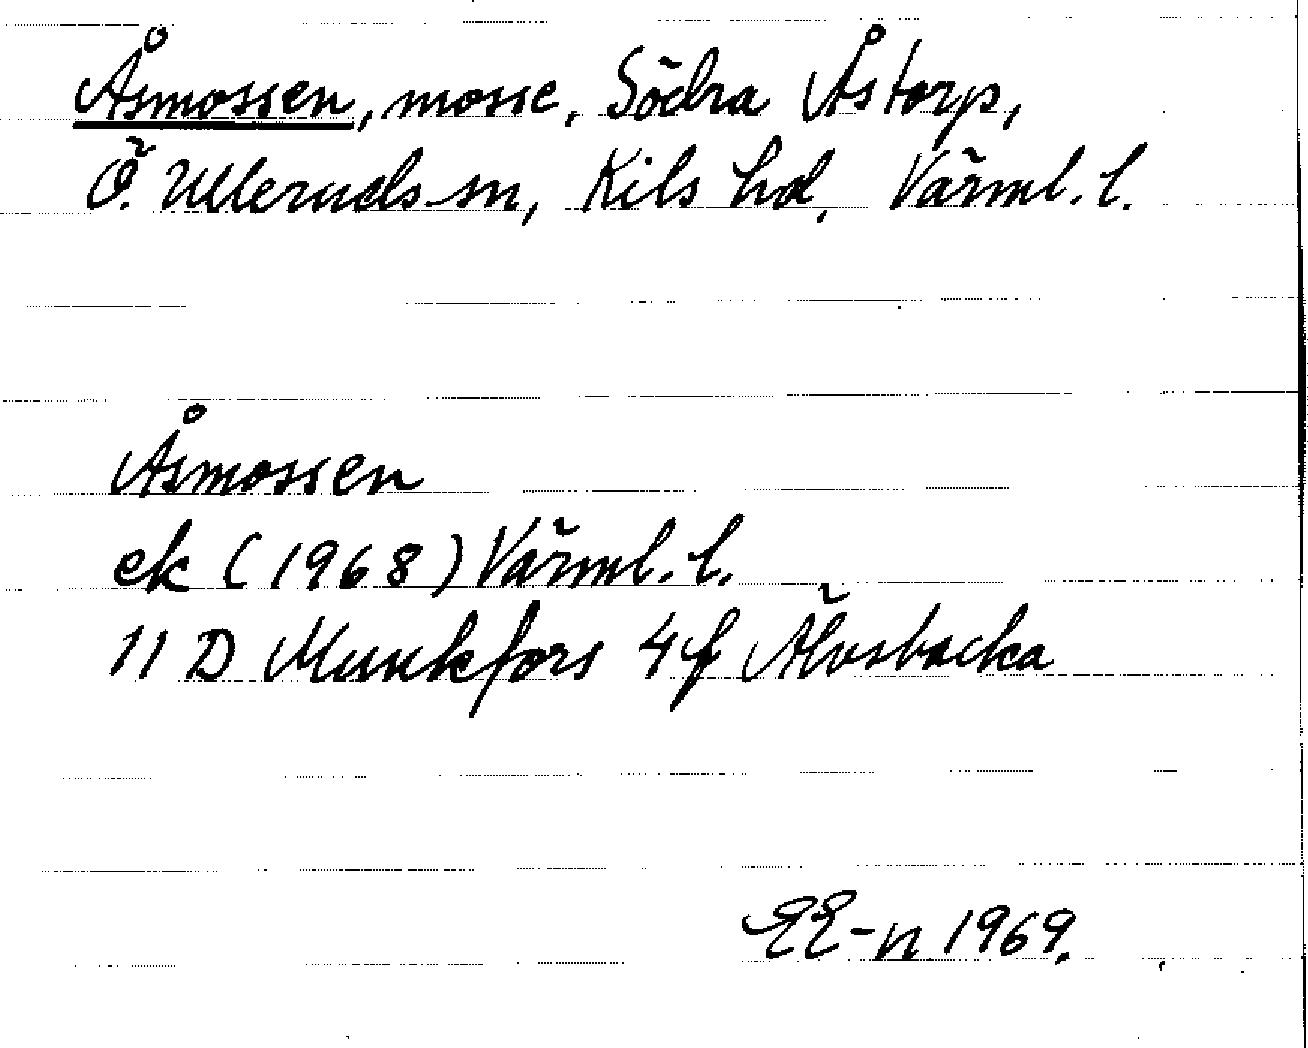 Åsmossen, mosse, Södra Åstorp,
Ö. Ulleruds sn, Kils hd, Värml. l.
Åsmossen
ek (1968) Värml. l.
11 D Munkfors 4f Älvsbacka
EE-n 1969.